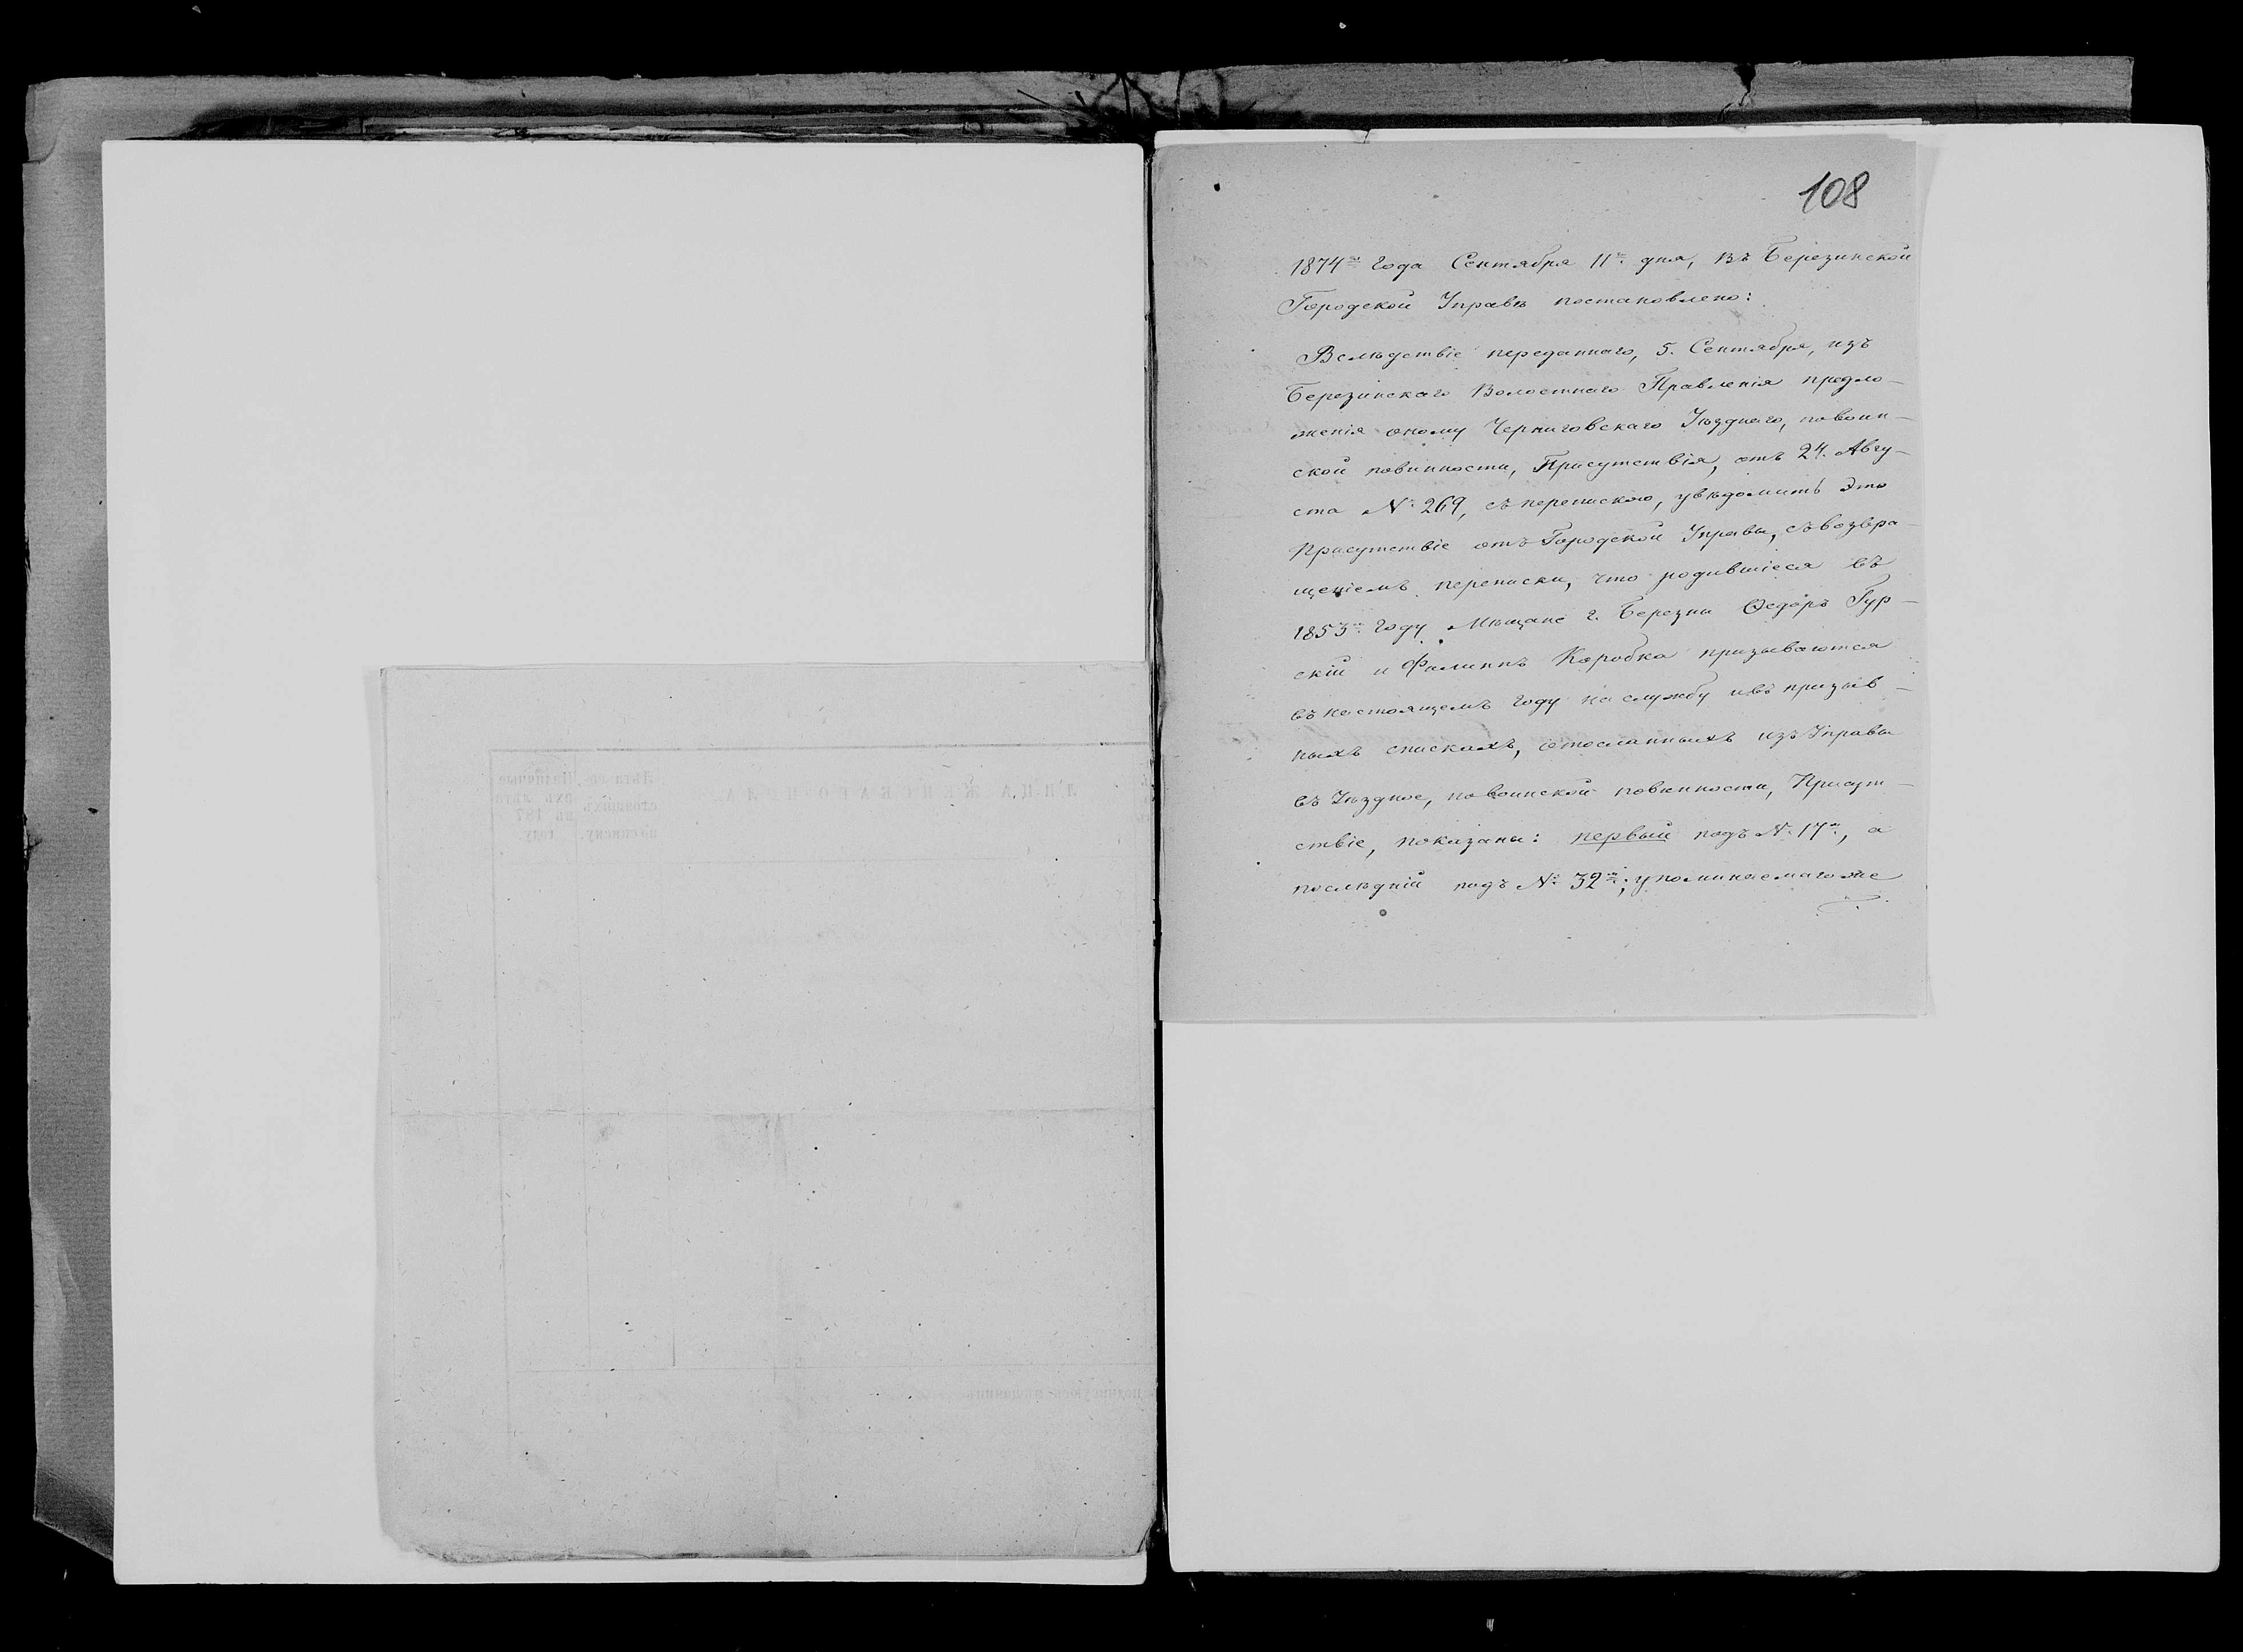 108
1874го года Сентября 11го дня, въ Березинской
Городской Управѣ постановлено:
Вслѣдствіе переданнаго, 5. Сентября, изъ
Березинскаго Волостнаго Правленія предло-
женія оному Черниговскаго Уѣзднаго, по воин-
ской повинности, Присутствія, отъ 24. Авгу-
ста № 269, съ перепискою, увѣдомить это
Присутствіе отъ Городской Управы, съ возвра-
щеніемъ переписки, что родившіеся въ
1853мъ году Мѣщане г. Березны Ѳедоръ Гур-
скій и Филиппъ Коробка призываются
въ настоящемъ году на службу и въ призыв-
ныхъ спискахъ, отосланныхъ изъ Управы
въ Уѣздное, по воинской повинности, Присут-
ствіе, показаны: первый подъ № 17мъ, а
послѣдній подъ № 32мъ; упоминаемаго же
ЛИЦА ЖЕНСКАГО ПОЛА